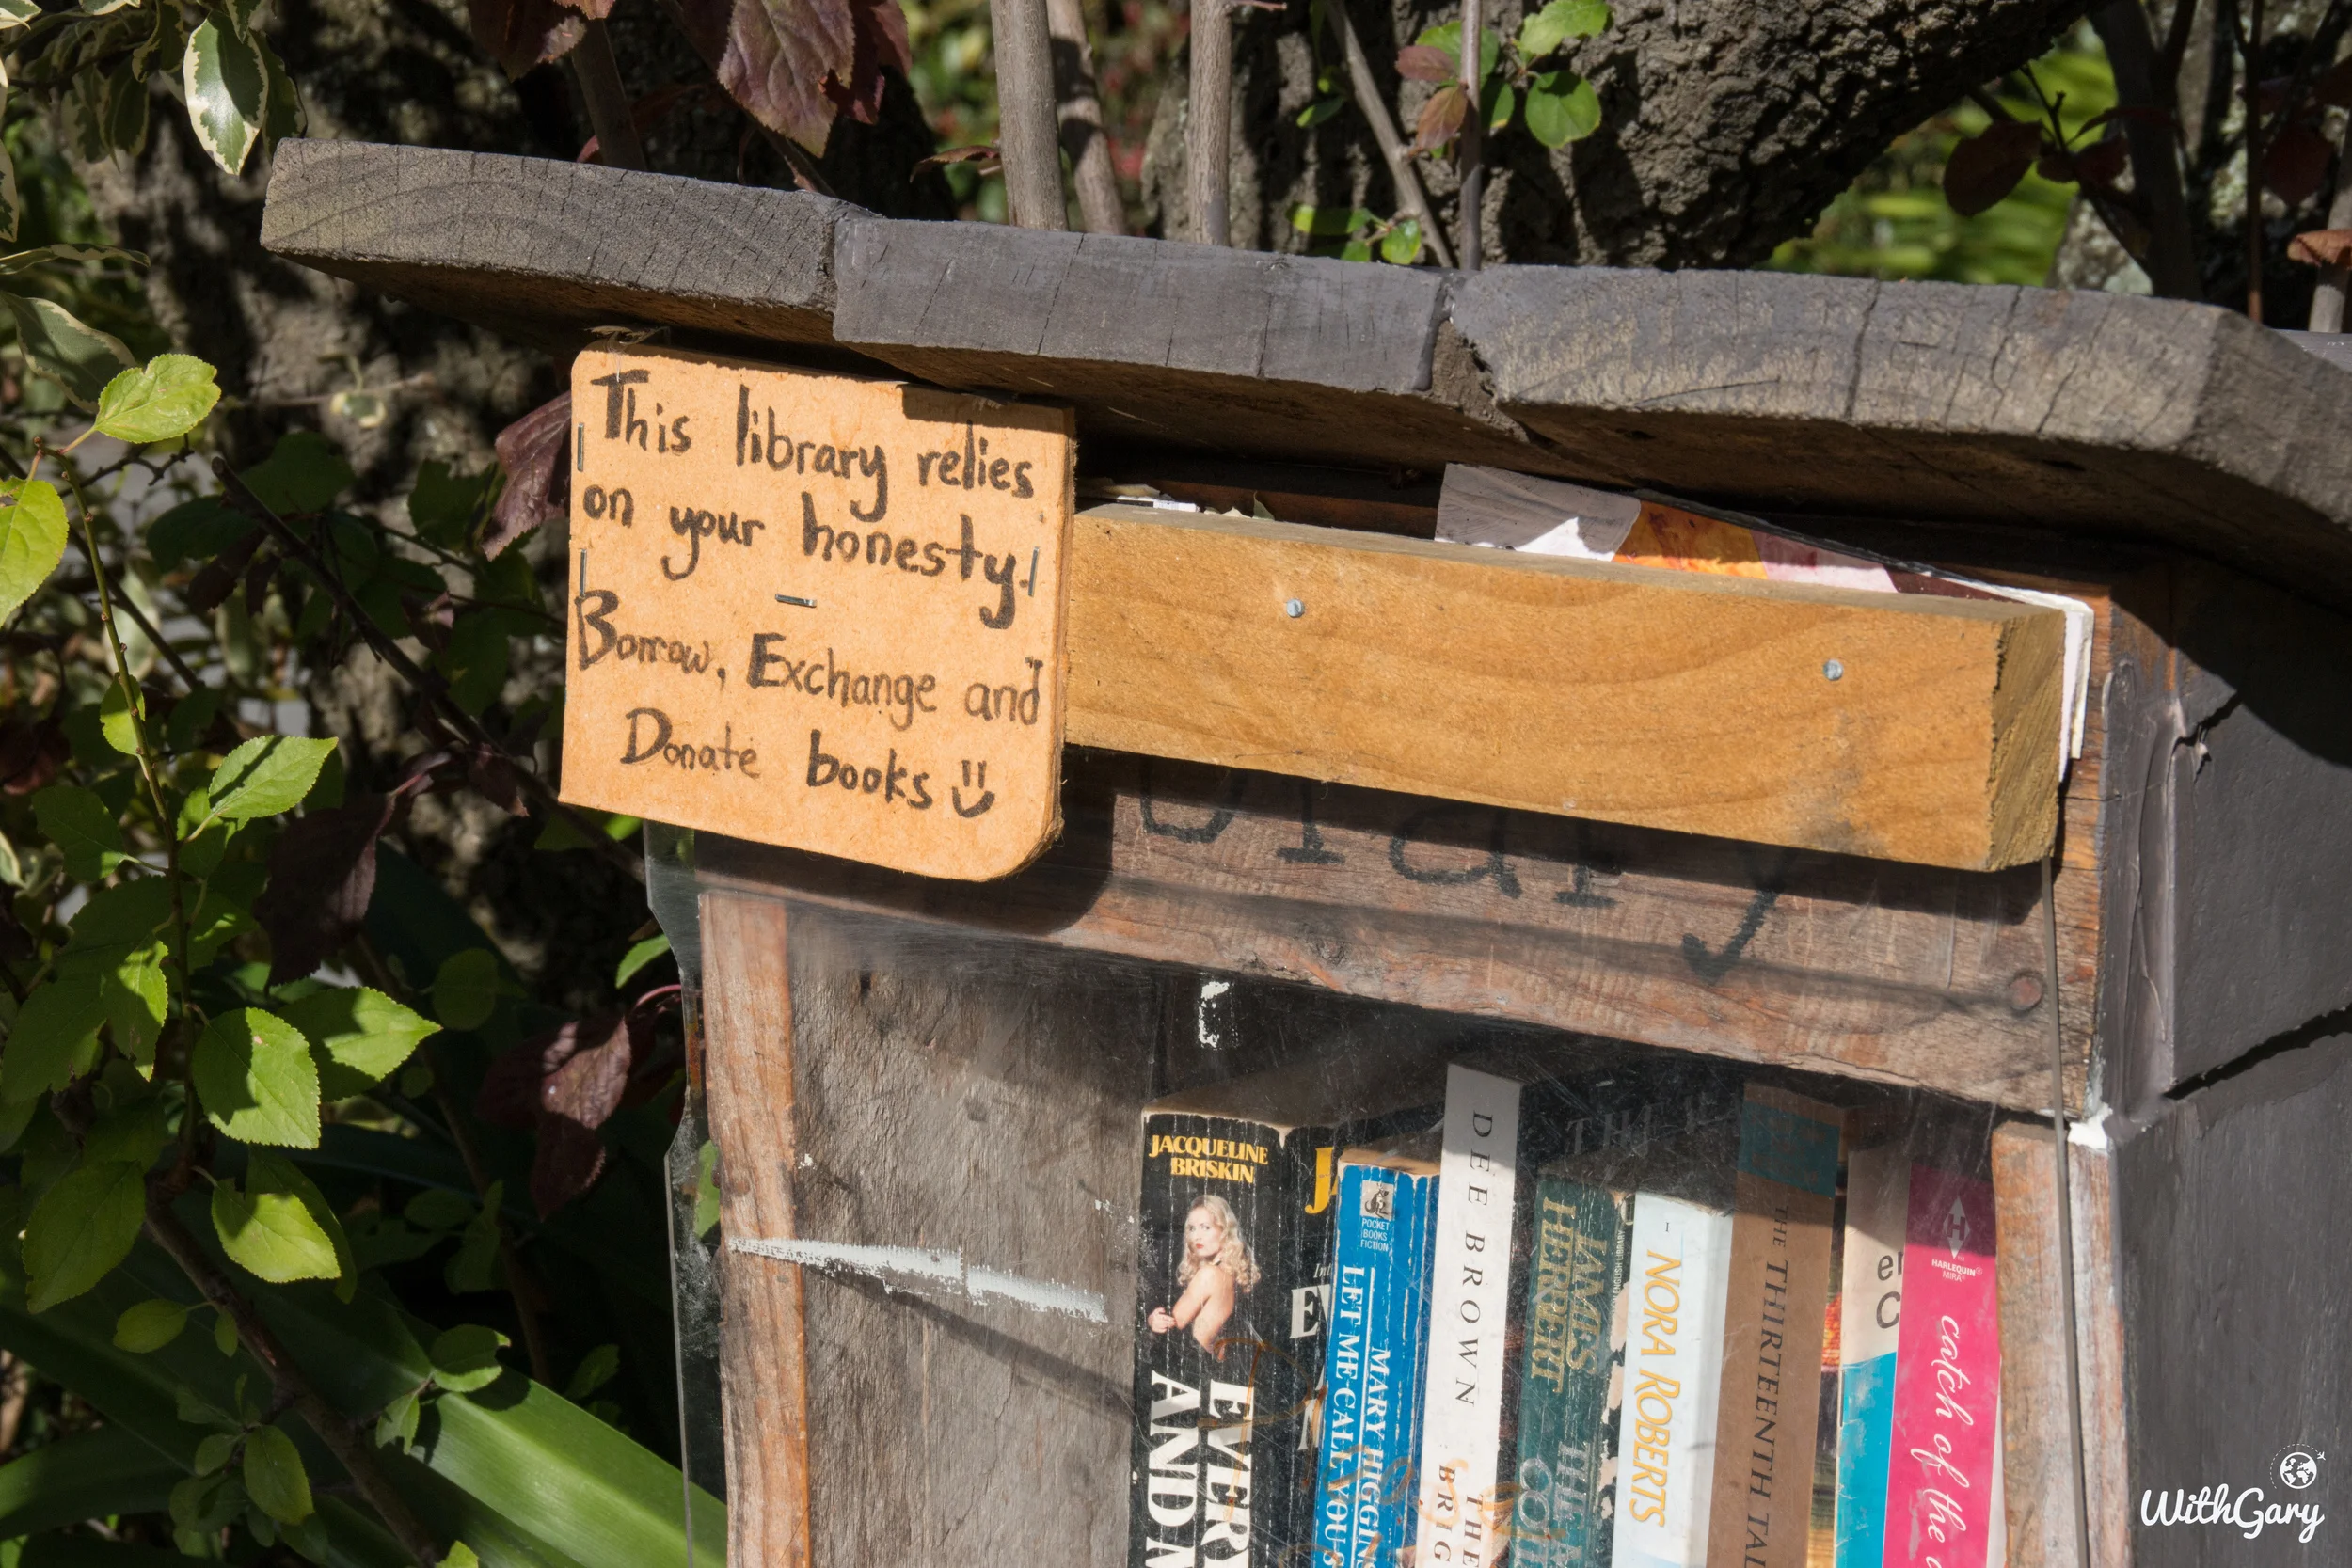 This library relies
on your honesty.
Borrow, Exchange and
Donate books
JACQUELINE
BRISKIN
EVERY
AND
POCKET
BOOKS
FICTION
MARY HIGGINS
LET ME CALL YOU
DEE BROWN
THE
JAMES
HERBERT
NORA ROBERTS
THE THIRTEENTH TAL
HARLEQUIN
MIRA
catch of the
WithGary